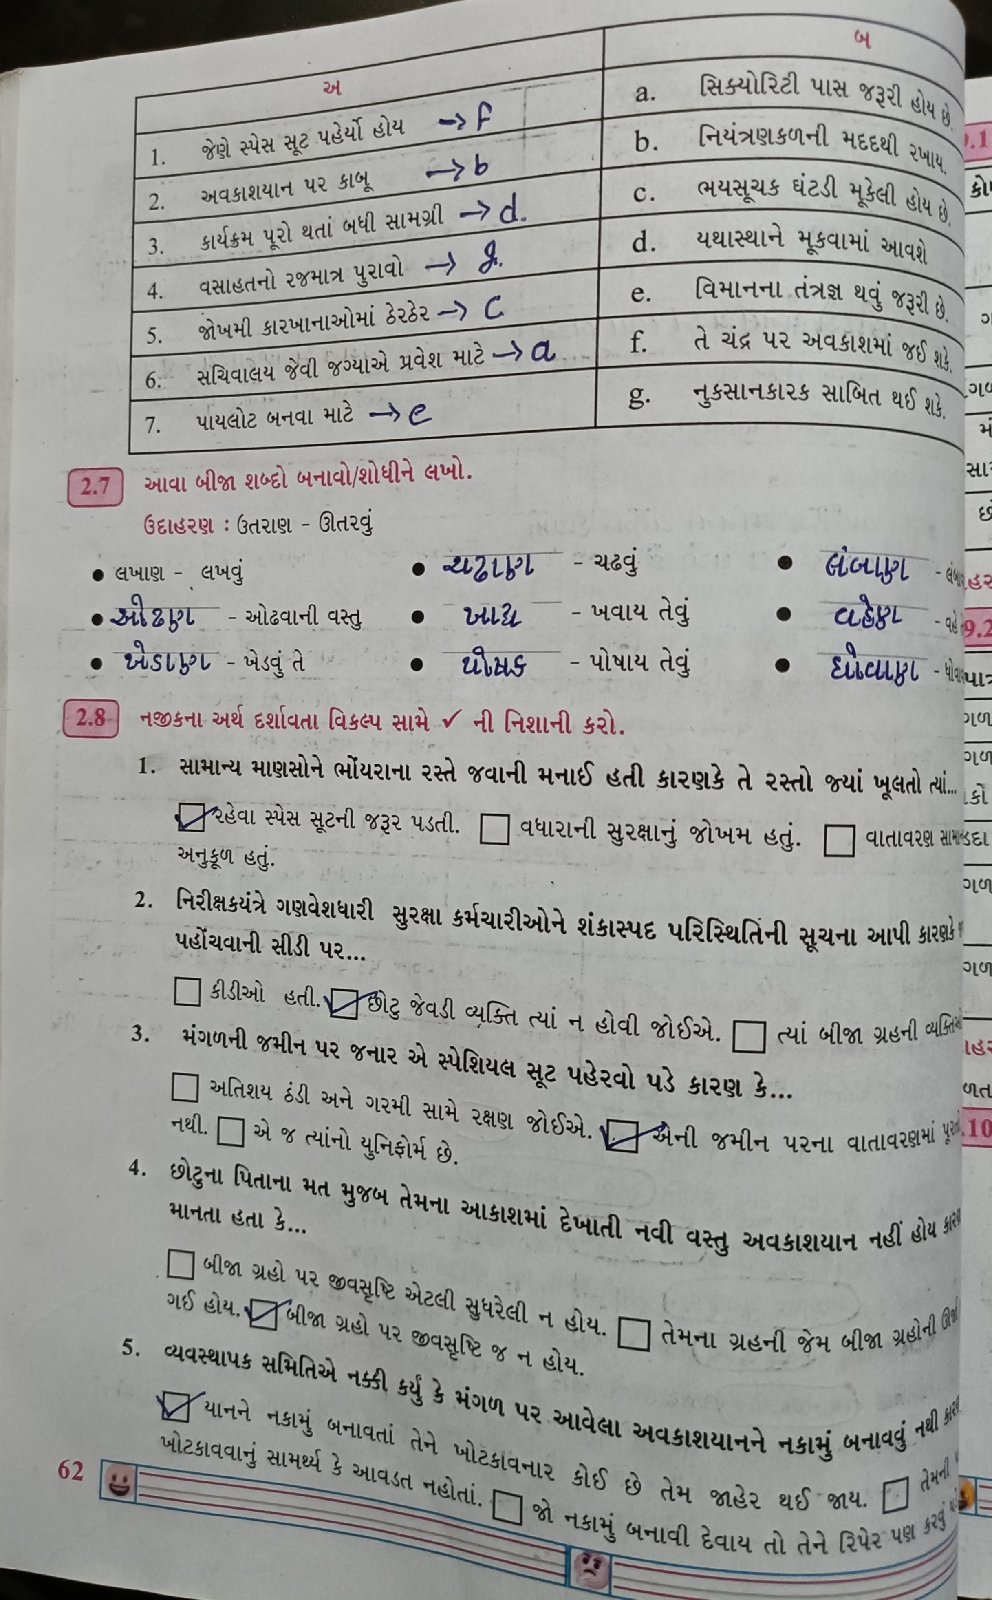 અ
બ
1. જેણે સ્પેસ સૂટ પહેર્યો હોય → f
a. સિક્યોરિટી પાસ જરૂરી હોય છે.
2. અવકાશયાન પર કાબૂ → b
b. નિયંત્રણકળની મદદથી રખાય.
3. કાર્યક્રમ પૂરો થતાં બધી સામગ્રી → d.
c. ભયસૂચક ઘંટડી મૂકેલી હોય છે.
4. વસાહતનો રજમાત્ર પુરાવો → g.
d. યથાસ્થાને મૂકવામાં આવશે
5. જોખમી કારખાનાઓમાં ઠેરઠેર → c
e. વિમાનના તંત્રજ્ઞ થવું જરૂરી છે.
6. સચિવાલય જેવી જગ્યાએ પ્રવેશ માટે → a
f. તે ચંદ્ર પર અવકાશમાં જઈ શકે.
7. પાયલોટ બનવા માટે → e
g. નુકસાનકારક સાબિત થઈ શકે.
2.7 આવા બીજા શબ્દો બનાવો/શોધીને લખો.
ઉદાહરણ : ઉતરાણ - ઊતરવું
• લખાણ - લખવું • ચઢાણ - ચઢવું • લંબાણ -
• ઓઢણ - ઓઢવાની વસ્તુ • ખાદ્ય - ખવાય તેવું • વહેણ -
• ખેડાણ - ખેડવું તે • પોષક - પોષાય તેવું • ધોવાણ -
2.8 નજીકના અર્થ દર્શાવતા વિકલ્પ સામે ✓ ની નિશાની કરો.
1. સામાન્ય માણસોને ભોંયરાના રસ્તે જવાની મનાઈ હતી કારણકે તે રસ્તો જ્યાં ખૂલતો ત્યાં...
રહેવા સ્પેસ સૂટની જરૂર પડતી. વધારાની સુરક્ષાનું જોખમ હતું. વાતાવરણ
અનુકૂળ હતું.
2. નિરીક્ષકયંત્રે ગણવેશધારી સુરક્ષા કર્મચારીઓને શંકાસ્પદ પરિસ્થિતિની સૂચના આપી કારણકે
પહોંચવાની સીડી પર...
કીડીઓ હતી. છોટુ જેવડી વ્યક્તિ ત્યાં ન હોવી જોઈએ. ત્યાં બીજા ગ્રહની
3. મંગળની જમીન પર જનાર એ સ્પેશિયલ સૂટ પહેરવો પડે કારણ કે...
અતિશય ઠંડી અને ગરમી સામે રક્ષણ જોઈએ. એની જમીન પરના વાતાવરણમાં
નથી. એ જ ત્યાંનો યુનિફોર્મ છે.
4. છોટુના પિતાના મત મુજબ તેમના આકાશમાં દેખાતી નવી વસ્તુ અવકાશયાન નહીં હોય
માનતા હતા કે...
બીજા ગ્રહો પર જીવસૃષ્ટિ એટલી સુધરેલી ન હોય. તેમના ગ્રહની જેમ બીજા ગ્રહોની
ગઈ હોય. બીજા ગ્રહો પર જીવસૃષ્ટિ જ ન હોય.
5. વ્યવસ્થાપક સમિતિએ નક્કી કર્યું કે મંગળ પર આવેલા અવકાશયાનને નકામું બનાવવું નથી
યાનને નકામું બનાવતાં તેને ખોટકાવનાર કોઈ છે તેમ જાહેર થઈ જાય. તેમની
ખોટકાવવાનું સામર્થ્ય કે આવડત નહોતાં. જો નકામું બનાવી દેવાય તો તેને રિપેર પણ કરવું
62